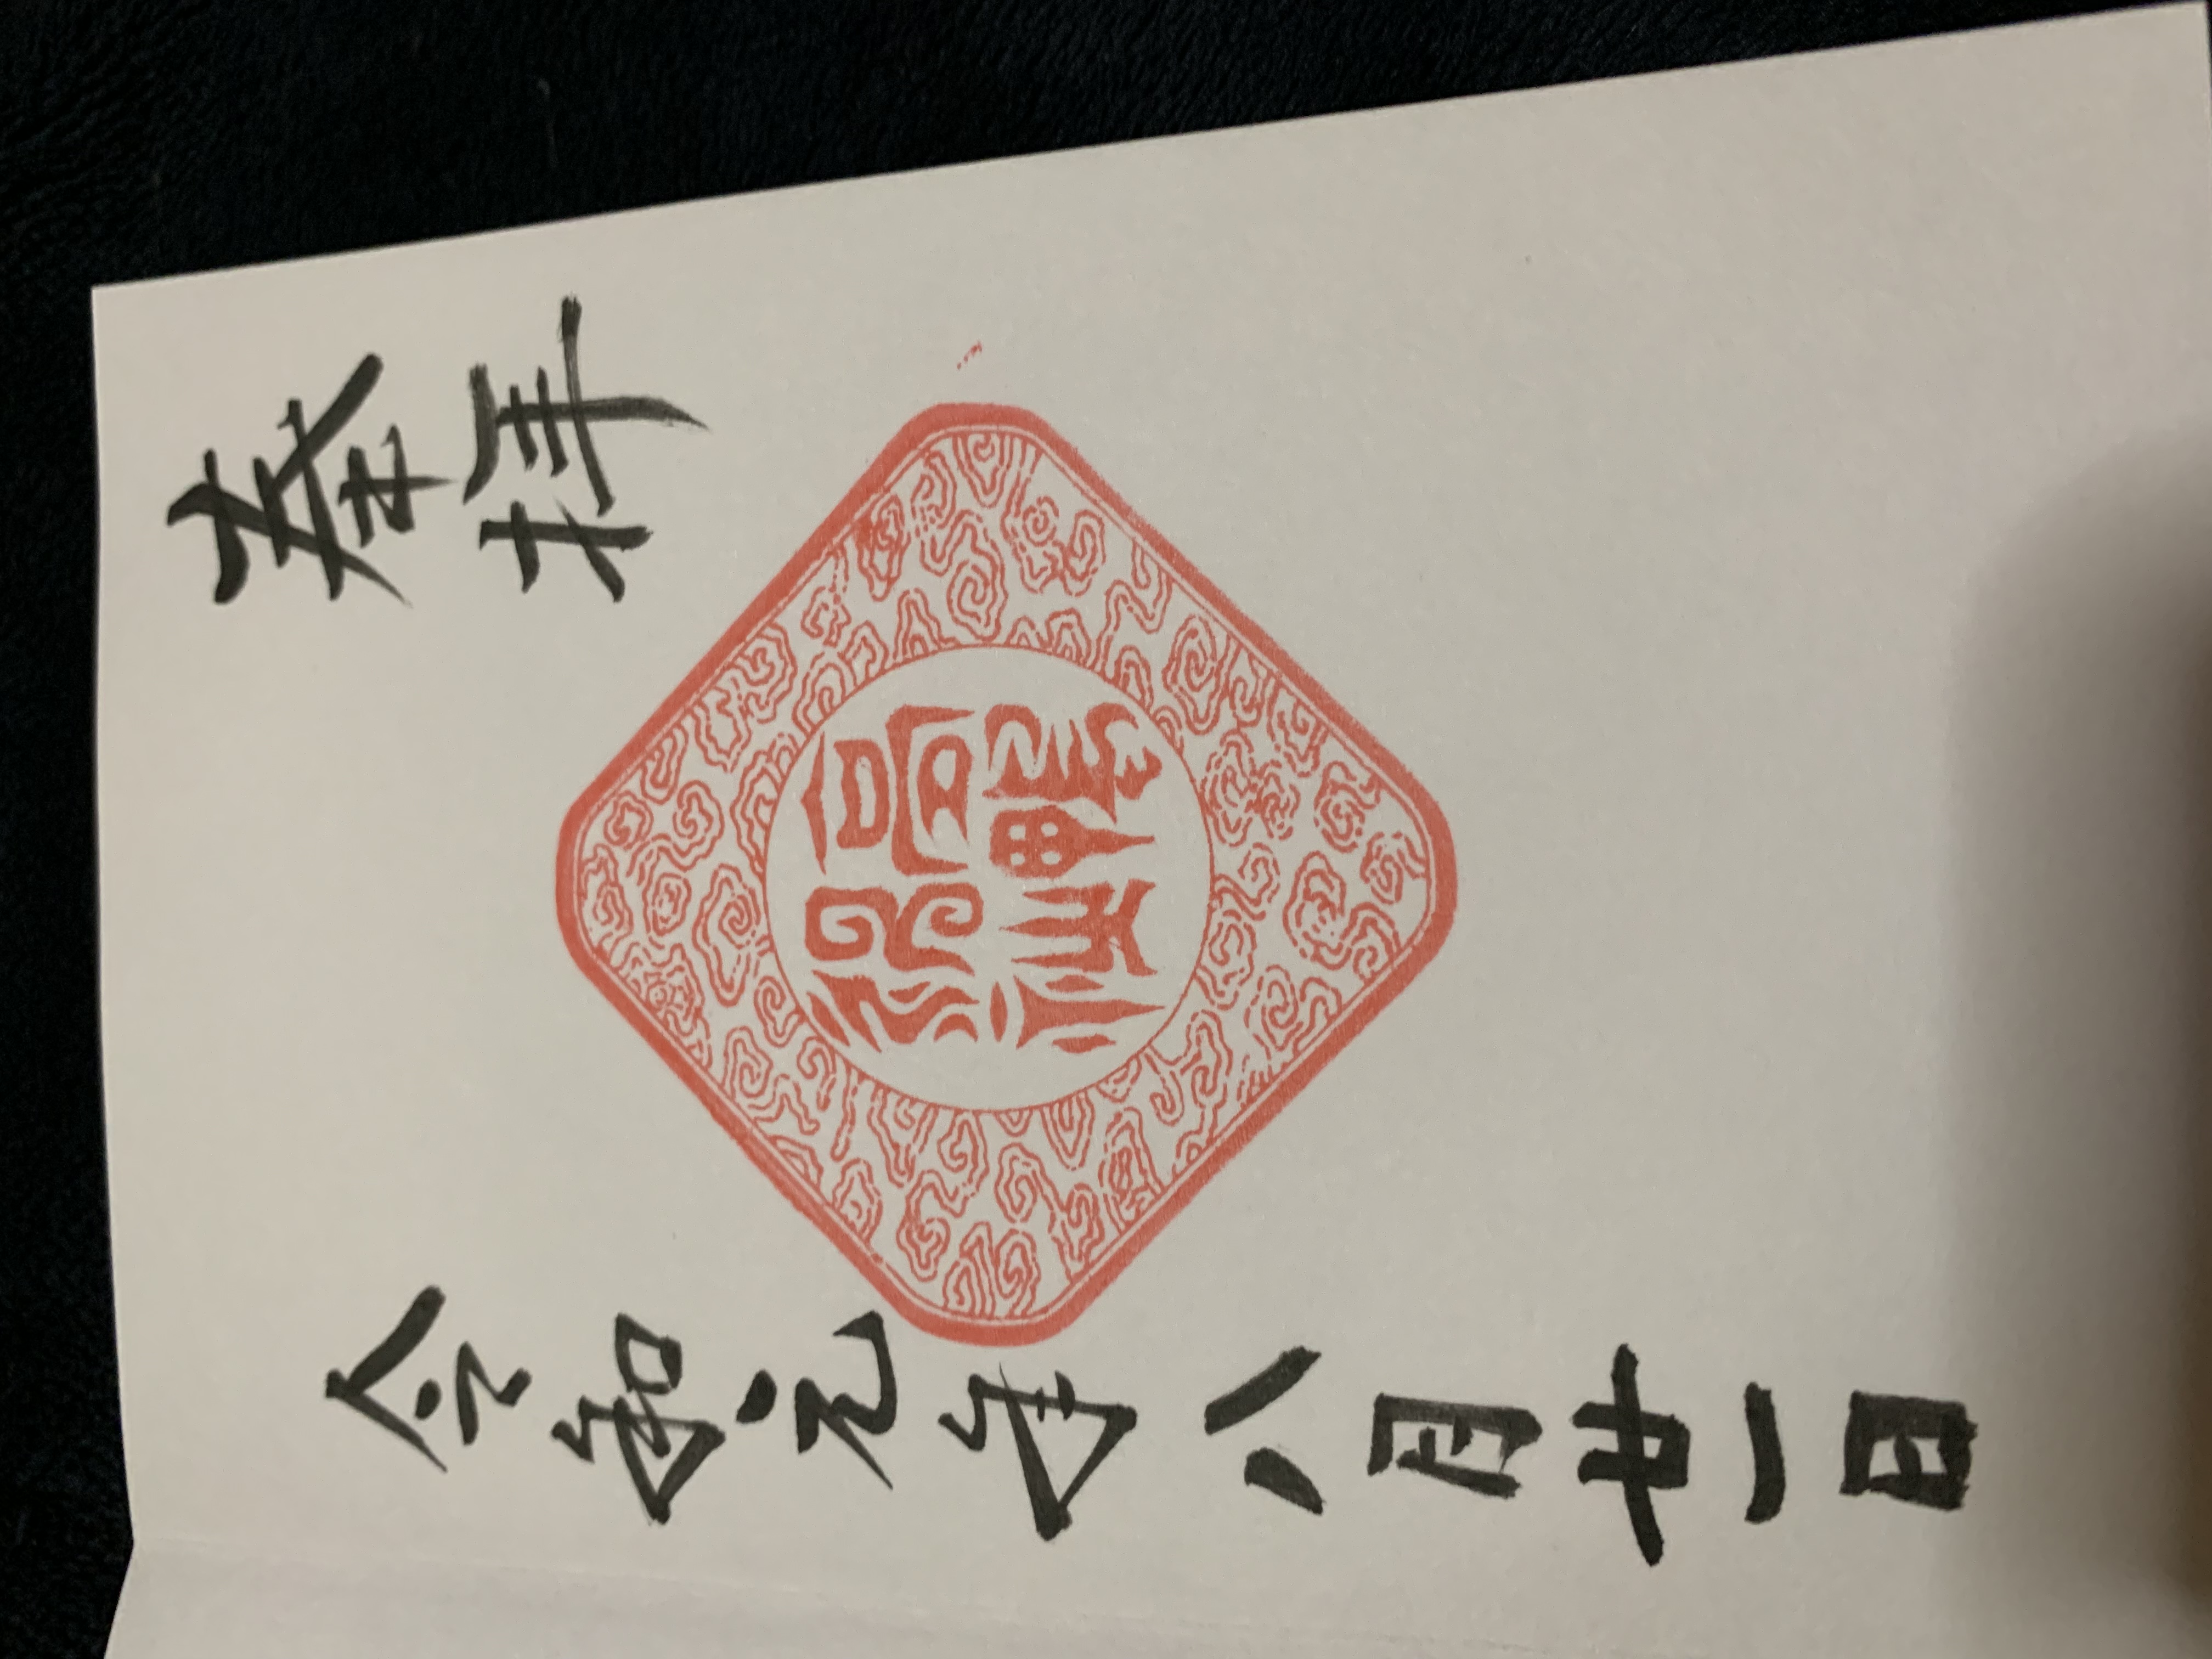 奉拝
令和元年八月廿一日